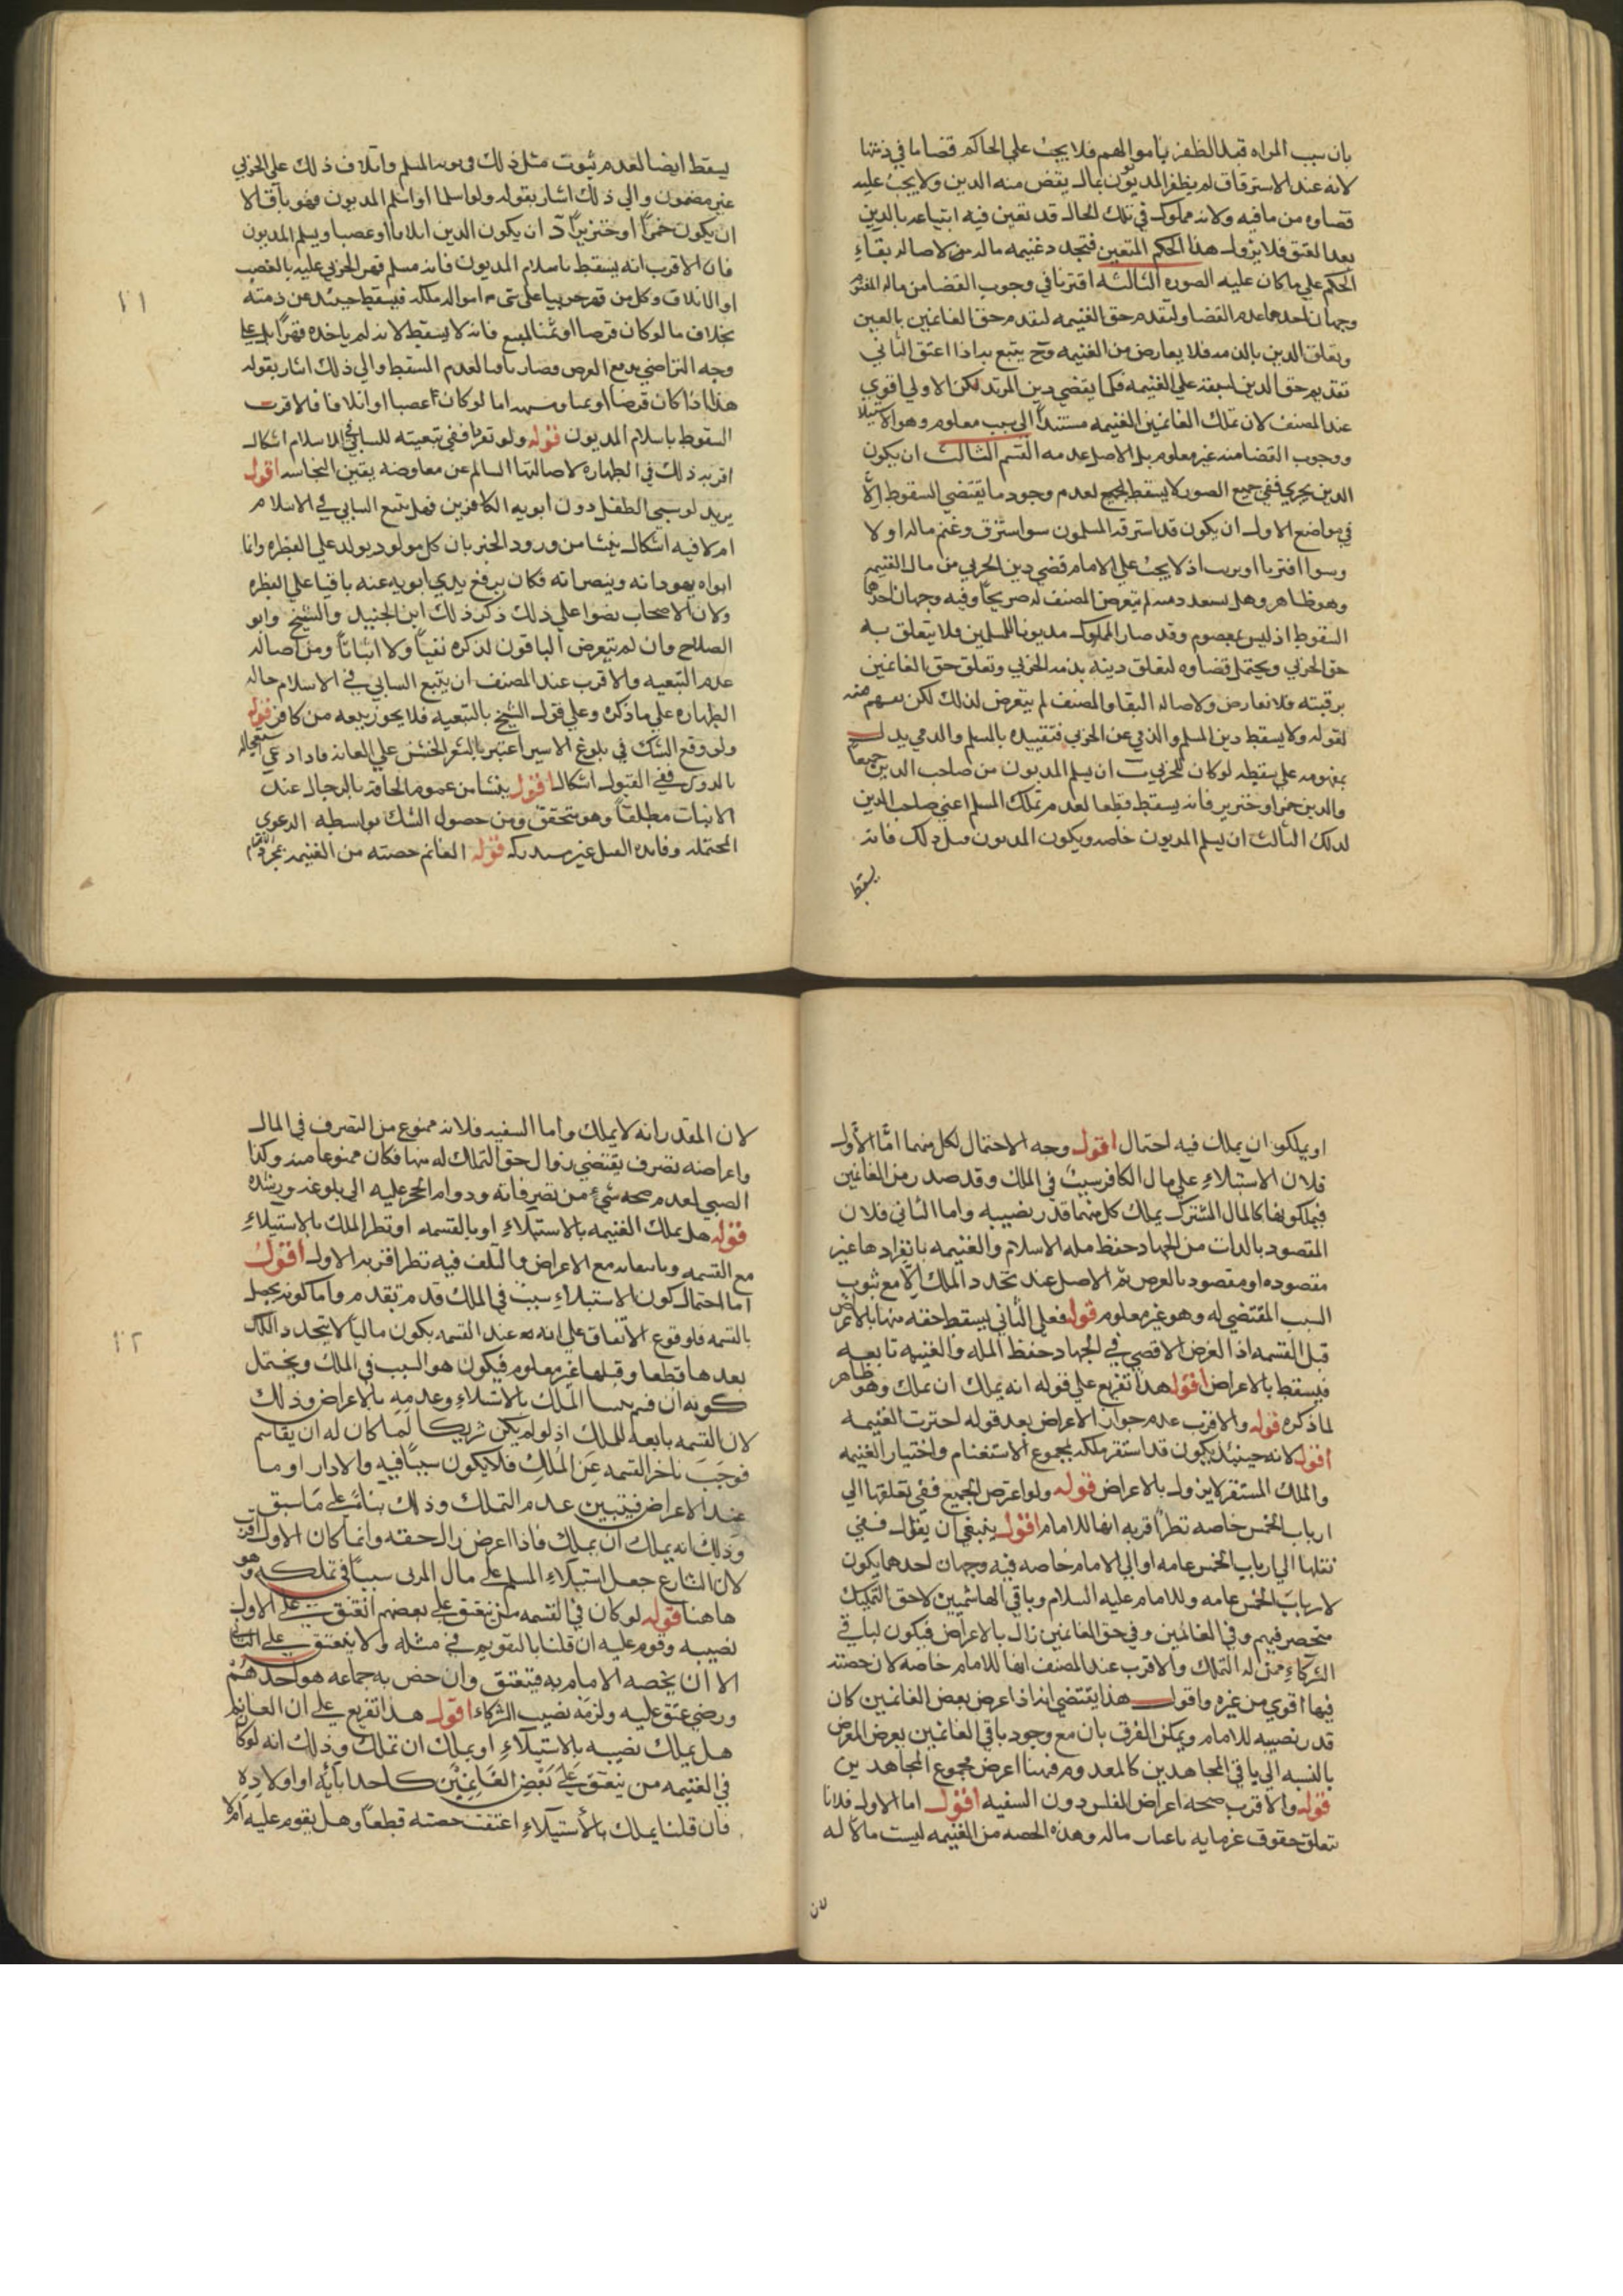 بان سبب المراه قبل الظفر باموالهم فلا يجب علي الحاكم قضا ما في ذمتها
لانه عند الاسترقاق لم يظفر المديون بمال يقض منه الدين ولا يجب عليه
قضاوه من ما فيه ولانه مملوك في تلك الحال قد تعين فيه ابتياعه بالدين
بعد العتق فلا يزول هذا الحكم المتعين فتجدد غنيمه ماله من لاصاله بقاء
الحكم علي ما كان عليه الصوره الثالثه اقترنا في وجوب القضا من ماله المغنوم
وجهان احدهما عدم القضا ولتقدم حق الغنيمه لتقدم حق الغانمين بالعين
وتعلق الدين بالذمه فلا يعارض من الغنيمه وح يتبع به اذا اعتق الثاني
تقديم حق الدين لسبقه علي الغنيمه فكما يقضي دين المرتد لكن الاولي اقوي
عند المصنف لان تملك الغانمين الغنيمه مستندا الي سبب معلوم وهو الاستيلا
ووجوب القضا منه غير معلوم بل الاصل عدمه القسم الثالث ان يكون
الدين بحربي ففي جميع الصور لا يسقط الجميع لعدم وجود ما يقتضي السقوط الّا
في مواضع الاول ان يكون قد استرقه المسلمون سوا استرق وغنم ماله اولا
وسوا اقترنا او برب اذ لا يجب علي الامام قضي دين الحربي من مال الغنيمه
وهو ظاهر وهل يسعد دمه لم يتعرض المصنف له صريحا وفيه وجهان احدهما
السقوط اذ ليس بمعصوم وقد صار المملوك مديونا للمسلمين فلا يتعلق به
حق الحربي ويحتمل قضاوه لتعلق دينه بذمه الحربي وتعلق حق الغانمين
برقبته فلا تعارض ولاصاله البقا والمصنف لم يتعرض لذلك لكن يفهم منه
لقوله ولا يسقط دين المسلم والذمي عن الحربي فتقييده بالمسلم والذمي يدل
بمفهومه علي سقطه لو كان للحربي ب ان يسلم المديون من صاحب الدين جميعا
والدين خمر او خنزير فانه يسقط قطعا لعدم تملك المسلم اعني صاحب الدين
لذلك الثالث ان يسلم المديون خاصه ويكون المديون قبل ذلك فانه
يسقط
يسقط ايضا لعدم ثبوت مثل ذلك في ذمه المسلم واتلاف ذلك علي الحربي
غير مضمون والي ذلك اشار بقوله ولو اسلما او اسلم المديون فهو باق الا
ان يكون خمرا او خنزيرا د ان يكون الدين اتلافا او غصبا ويسلم المديون
فان الاقرب انه يسقط باسلام المديون فانه مسلم قهر الحربي عليه بالغصب
او الاتلاف وكل من قهر حربيا علي شي من امواله ملكه فيسقط حينئذ عن ذمته
بخلاف ما لو كان قرضا او ثمنا لمبيع فانه لا يسقط لانه لم ياخذه قهرا بل علي
وجه التراضي مع العرض فصار باقيا لعدم المسقط والي ذلك اشار بقوله
هذا اذا كان قرضا او ثمنا وشبهه اما لو كان غصبا او اتلافا فالاقرب
السقوط باسلام المديون قوله ولو تعرنا ففي تبعيته للسابي في الاسلام اشكال
اقربه ذلك في الطهاره لاصالتها السالم عن معاوضه يقين النجاسه اقول
يريد لو سبي الطفل دون ابويه الكافرين فهل يتبع السابي في الاسلام
ام لا فيه اشكال ينشا من ورود الخبر بان كل مولود يولد علي الفطره وانما
ابواه يهودانه وينصرانه فكان برفع يدي ابويه عنه باقيا علي الفطره
ولان الاصحاب نصوا علي ذلك ذكر ذلك ابن الجنيد والشيخ وابو
الصلاح وان لم يتعرض الباقون لذكره نفيا ولا اثباتا ومن اصاله
عدم التبعيه والاقرب عند المصنف ان يتبع السابي في الاسلام حاله
الطهاره علي ما ذكره وعلي قول الشيخ بالتبعيه فلا يجوز بيعه من كافر قوله
ولو وقع الشك في بلوغ الاسير اعتبر بالشعر الخشن علي العانه فاذا ادعي استعجاله
بالدوا ففي القبول اشكال اقول ينشا من عموم الحاقه بالرجال عند
الانبات مطلقا وهو متحقق ومن حصول الشك بواسطه الدعوي
المحتمله وفايده الغسل غير مستدركه قوله الغانم حصته من الغنيمه بمجرد
١١
او يملكون ان يملك فيه احتمال اقول وجه الاحتمال لكل منهما امّا الأول
فلان الاستيلاء علي مال الكافر سبب في الملك وقد صدر من الغانمين
فيملكونها كالمال المشترك يملك كل منهما قدر نصيبه واما الثاني فلان
المقصود بالذات من الجهاد حفظ مله الاسلام والغنيمه بانفرادها غير
مقصوده او مقصود بالعرض ثم الاصل عند تجدد الملك الّا مع ثبوت
السبب المقتضي له وهو غير معلوم قوله فعلي الثاني يسقط حقه منها بالاعراض
قبل القسمه اذ الغرض الاقصي في الجهاد حفظ المله والغنيمه تابعه
فيسقط بالاعراض اقول هذا تفريع علي قوله انه يملك ان يملك وهو ظاهر
لما ذكره قوله والاقرب عدم جواز الاعراض بعد قوله اخترت الغنيمه
اقول لانه حينئذ يكون قد استقر ملكه بمجموع الاستغنام واختيار الغنيمه
والملك المستقر لا يزول بالاعراض قوله ولو اعرض الجميع ففي تعلقها الي
ارباب الخمس خاصه نظرا اقربه انها للامام اقول ينبغي ان يقال ففي
نقلها الي ارباب الخمس عامه او الي الامام خاصه فيه وجهان احدهما يكون
لارباب الخمس عامه وللامام عليه السلام وباقي الهاشميين لاحق التمليك
منحصر فيهم وفي الغانمين وفي حق الغانمين زال بالاعراض فيكون لباقي
الشركاء ممن له التملك والاقرب عند المصنف انها للامام خاصه لان حصته
فيها اقوي من غيره واقول هذا يقتضي انه اذا اعرض بعض الغانمين كان
قدر نصيبه للامام ويمكن الفرق بان مع وجود باقي الغانمين يعرض المعرض
بالنسبه الي باقي المجاهدين كالمعدوم فهنا اعرض مجموع المجاهدين
قوله والاقرب صحه اعراض المفلس دون السفيه اقول اما الاول فلانا
تتعلق حقوق غرمايه باعيان ماله وهذه الحصه من الغنيمه ليست مالا له
لان
لان المقدر انه لا يملك واما السفيه فلانه ممنوع من التصرف في المال
واعراضه تصرف يقتضي زوال حق التملك له منها فكان ممنوعا منه وكذا
الصبي لعدم صحه شيء من تصرفاته ودوام الحجر عليه الي بلوغه ورشده
قوله هل يملك الغنيمه بالاستيلاء او بالقسمه او تظر الملك بالاستيلاء
مع القسمه وبانتفائه مع الاعراض والتلف فيه نظر اقربه الاول اقول
اما احتمال كون الاستيلاء سبب في الملك قد تقدم واما كونه يحصل
بالقسمه فلوقوع الاتفاق علي انه عند القسمه يكون مالكا لا يتجدد الملك
بعدها قطعا وقبلها غير معلوم فيكون هو السبب في الملك ويحتمل
كونه ان قسم الملك بالاستيلاء وعدمه بالاعراض وذلك
لان القسمه تابعه للملك اذ لو لم يكن شريكا لما كان له ان يقاسم
فوجب تاخر القسمه عن الملك فلا يكون سببا فيه والادار او ما
عند الاعراض فيتبين عدم التملك وذلك بناءً علي ما سبق
وذلك انه يملك ان يملك فاذا اعرض زال حقه وانما كان الاول اقرب
لان الشارع جعل استيلاء المسلم علي مال الحربي سببا في تملكه وهو
هاهنا قوله لو كان في القسمه من ينعتق علي بعضهم انعتق علي الاول
نصيبه وقوم عليه ان قلنا بالتقويم في مثله ولا ينعتق علي الثاني
الا ان يخصه الامام به فينعتق وان خص به جماعه هو احدهم
ورضي عتق عليه ولزمه نصيب الشركاء اقول هذا تفريع علي ان الغانم
هل يملك نصيبه بالاستيلاء او يملك ان تملك وذلك انه لو كان
في الغنيمه من ينعتق علي بعض الغانمين كاحد ابائه او اولاده
فان قلنا يملك بالأستيلاء اعتقت حصته قطعا وهل يقوم عليه ام لا
١٢